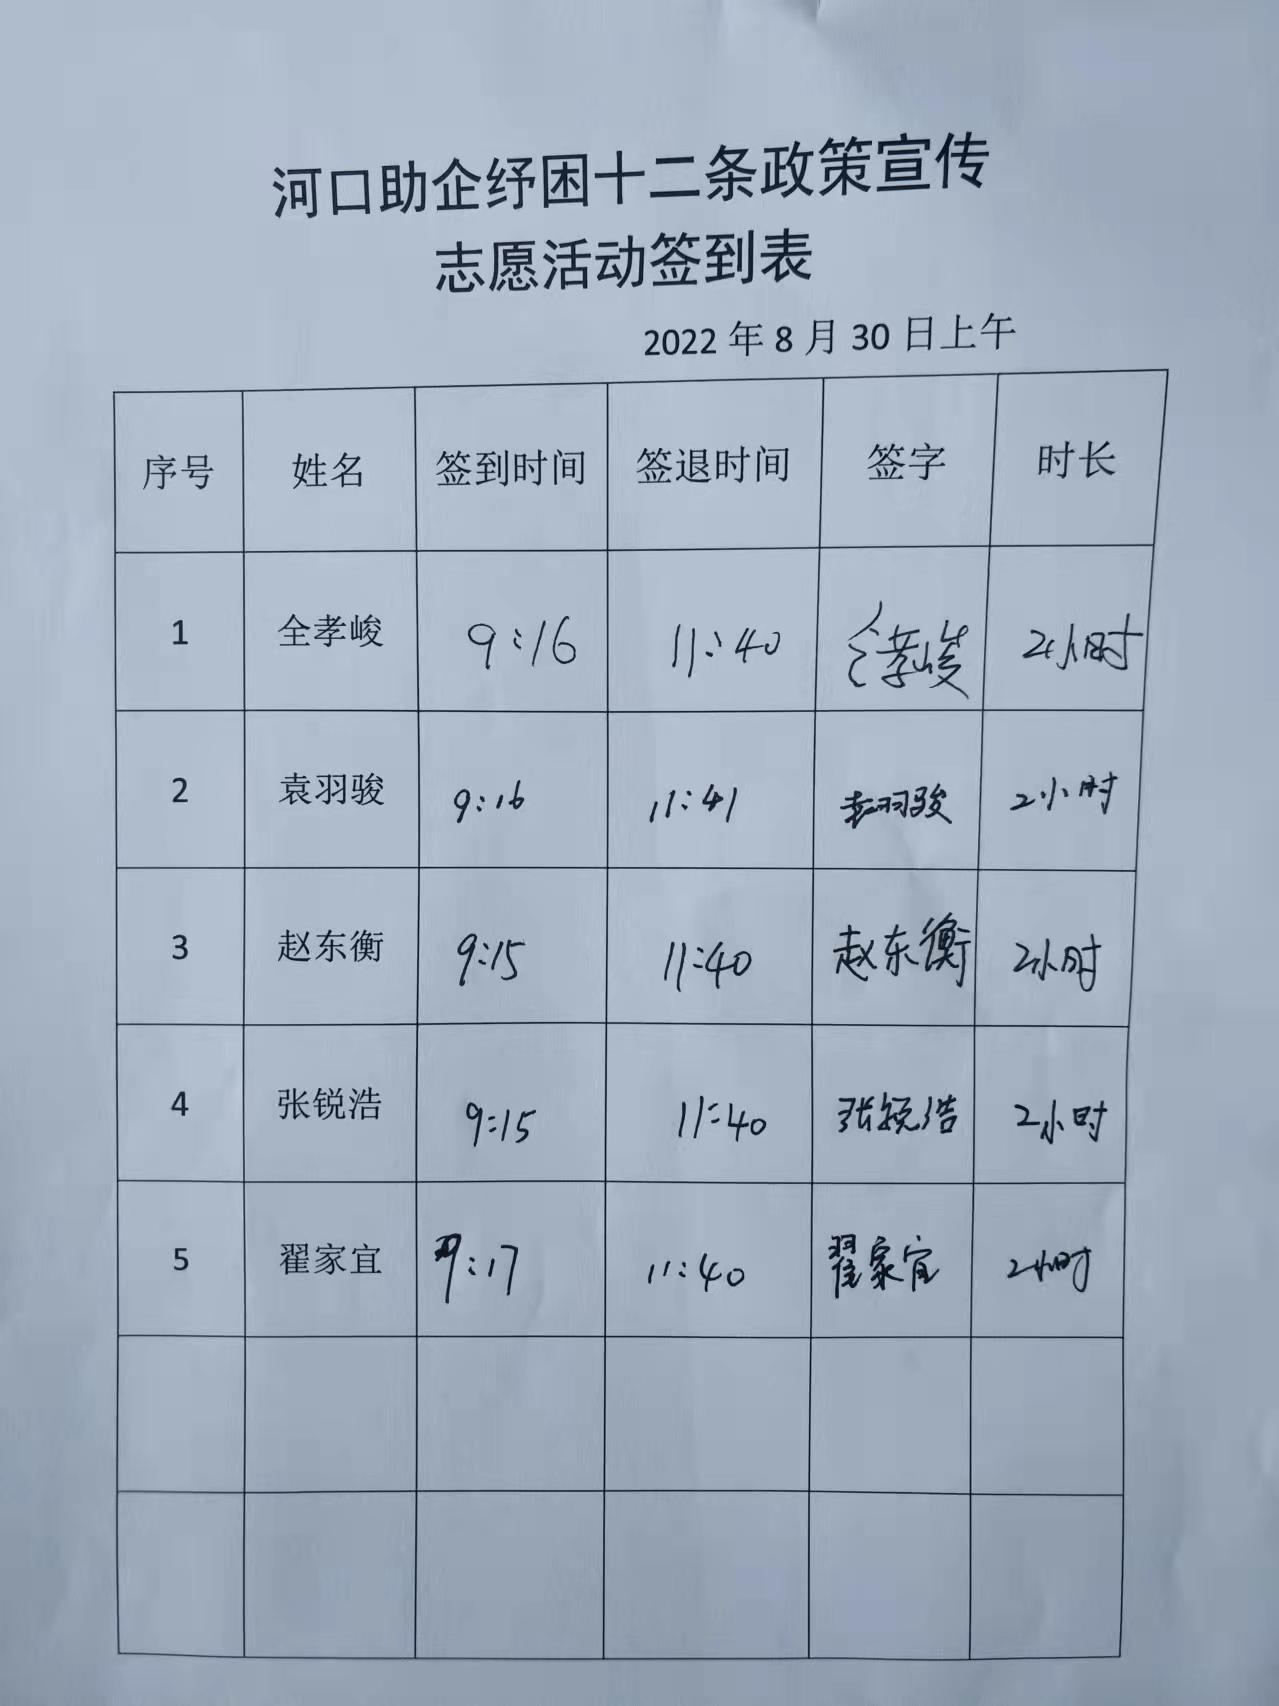 河口助企纾困十二条政策宣传
志愿活动签到表
2022 年 8 月 30 日上午
序号 姓名 签到时间 签退时间 签字 时长
1 全孝峻 9:16 11:40 全孝峻 2小时
2 袁羽骏 9:16 11:41 袁羽骏 2小时
3 赵东衡 9:15 11:40 赵东衡 2小时
4 张锐浩 9:15 11:40 张锐浩 2小时
5 翟家宜 9:17 11:40 翟家宜 2小时